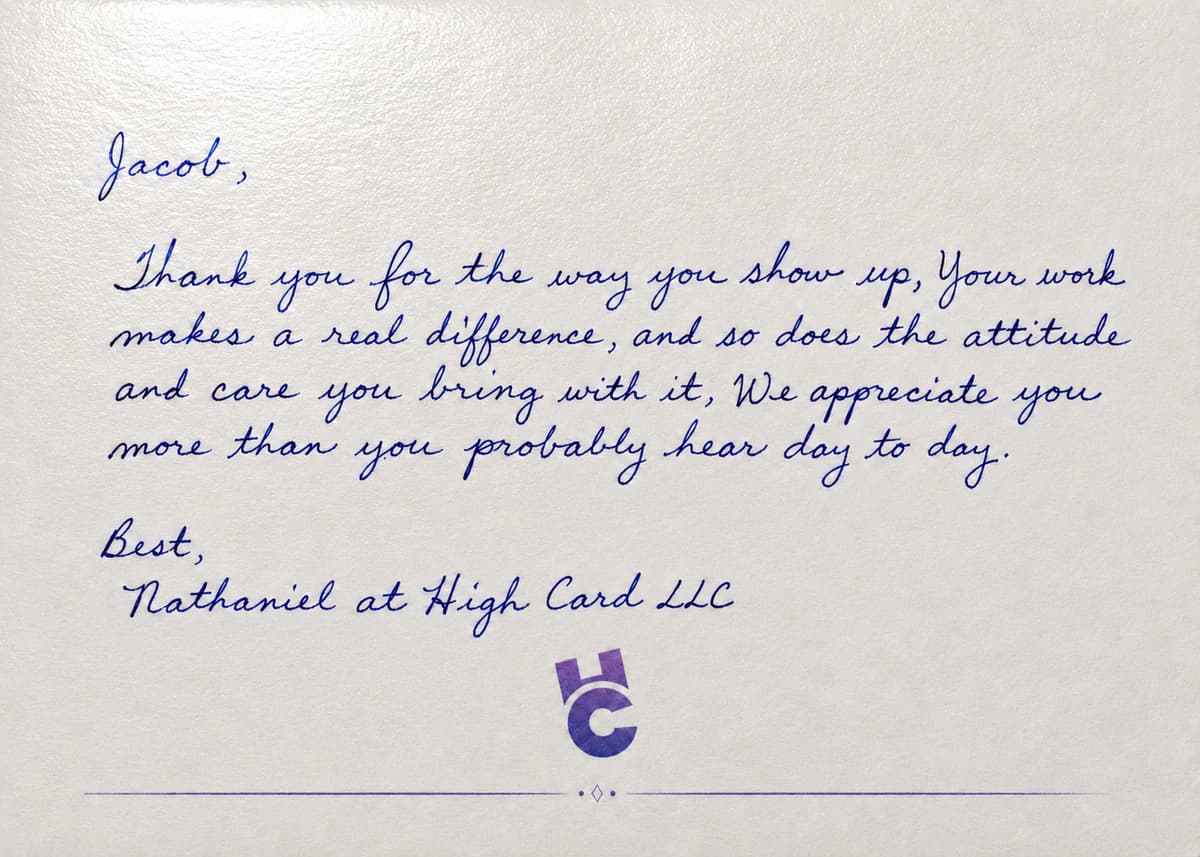 Jacob,
Thank you for the way you show up, Your work
makes a real difference, and so does the attitude
and care you bring with it, We appreciate you
more than you probably hear day to day.
Best,
Nathaniel at High Card LLC
HC